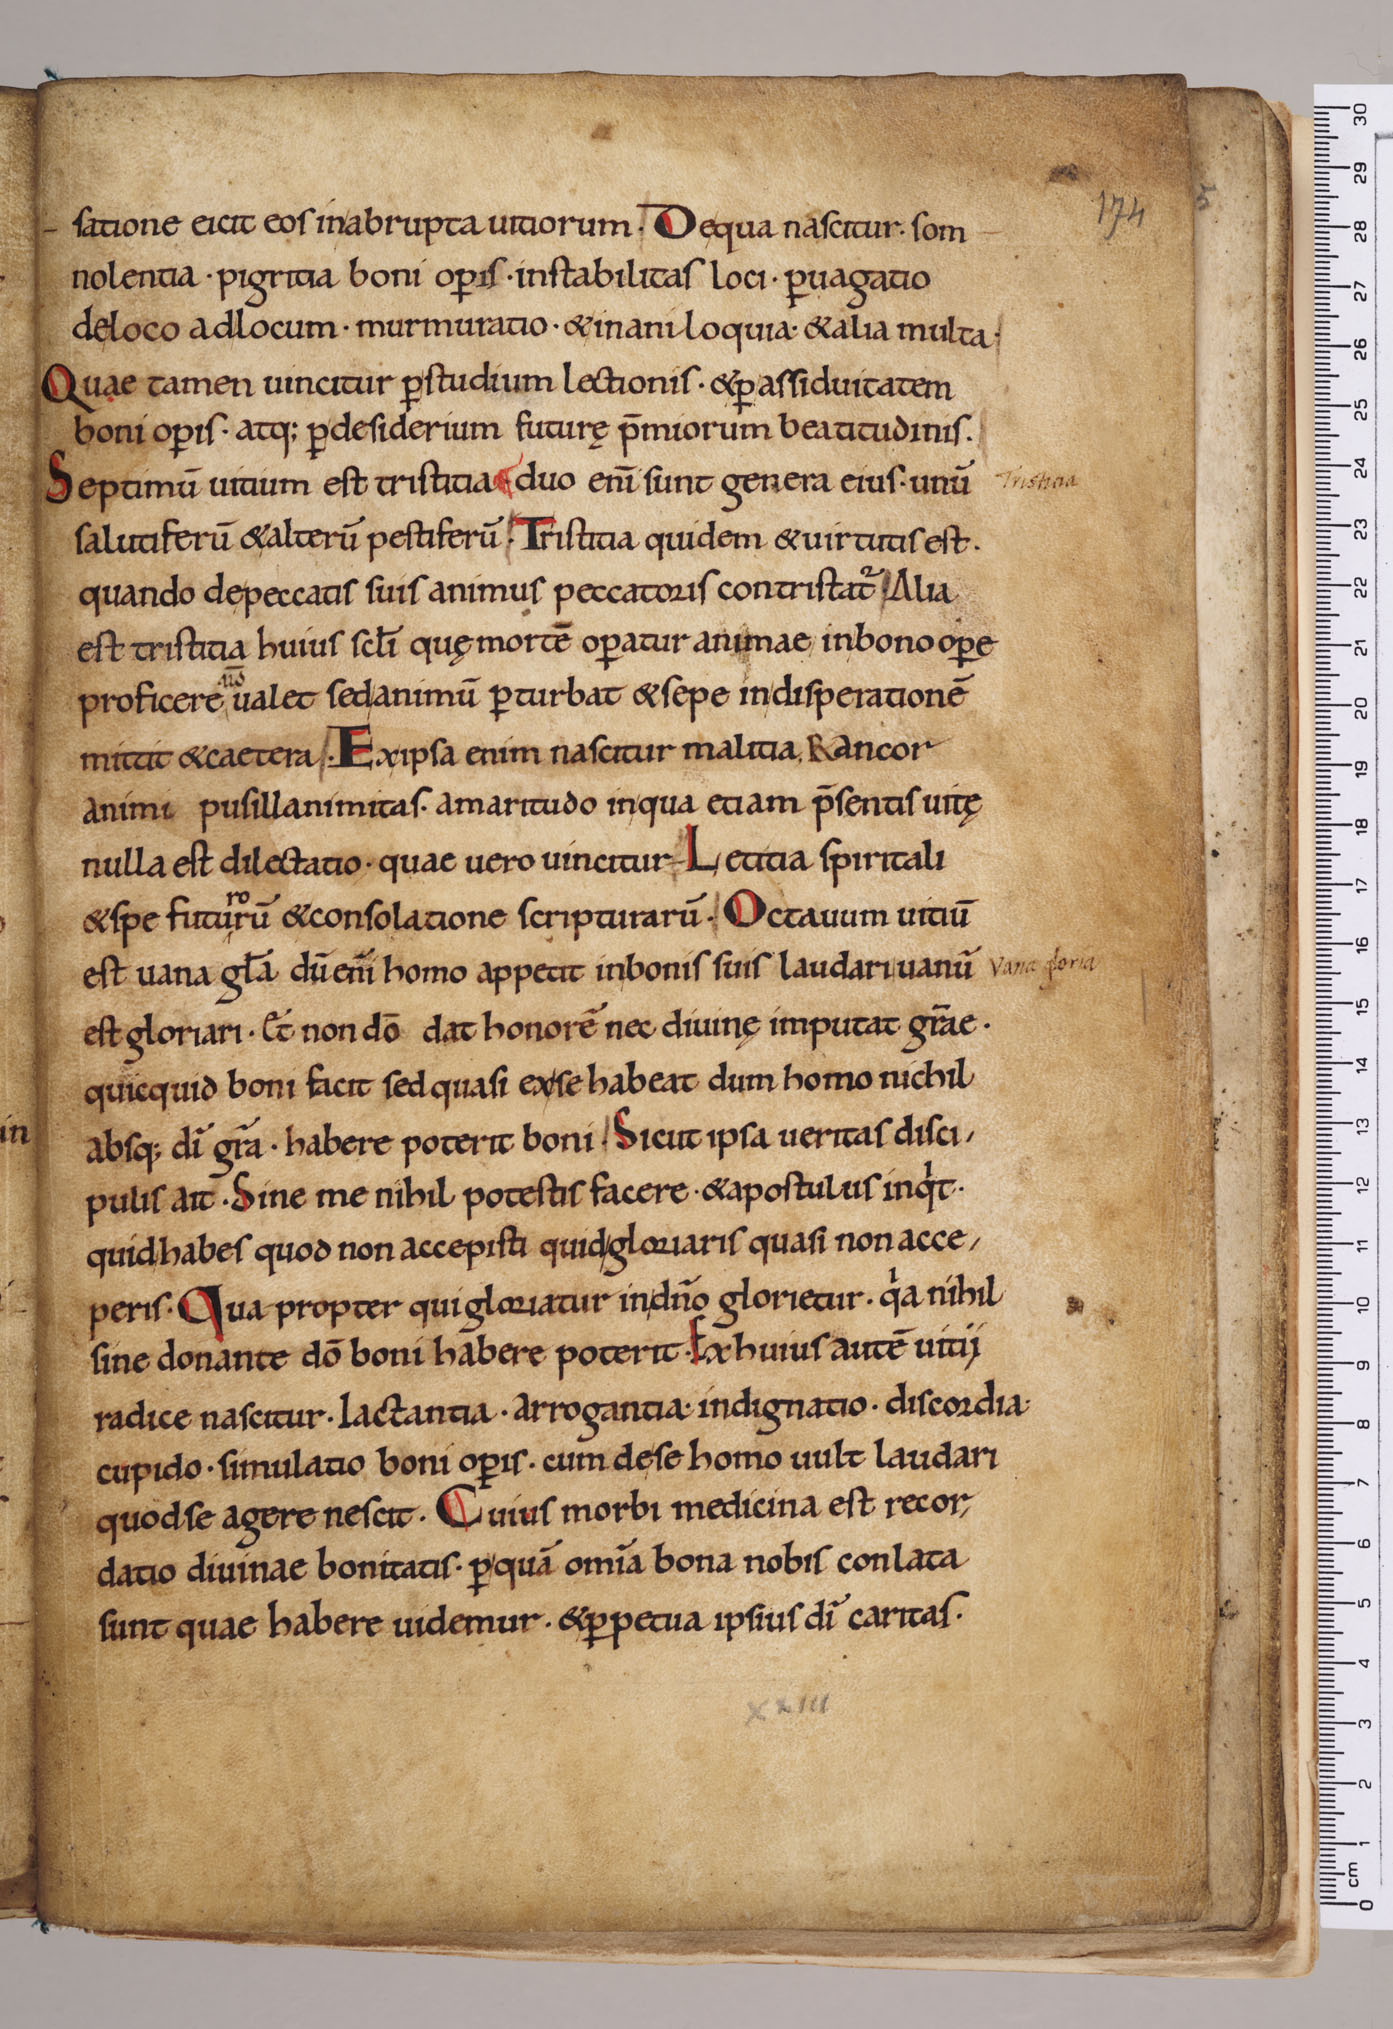 174
5
satione eicit eos inabrupta uitiorum. Dequa nascitur. som
nolentia. pigritia boni oꝑis. instabilitas loci. ꝑuagatio
deloco adlocum. murmuratio. &inaniloquia. &alia multa.
Quae tamen uincitur ꝑstudium lectionis. &ꝑassiduitatem
boni oꝑis. atq; ꝑdesiderium futurę p̄miorum beatitudinis.
Septimū uitium est tristitia duo enī sunt genera eius. unū
Tristicia
salutiferū &alterū pestiferū. Tristitia quidem &uirtutis est.
quando depeccatis suis animus peccatoris contristat᷑ Alia
est tristitia huius sclī quę mortē oꝑatur animae inbono oꝑe
nō
proficere ualet sedanimū ꝑturbat &sepe indisperationē
mittit &caetera. Exipsa enim nascitur malitia, Rancor
animi pusillanimitas. amaritudo inqua etiam p̄sentis uitę
nulla est dilectatio. quae uero uincitur Letitia spiritali
ro
&spe futurū &consolatione scripturarū. Octauum uitiū
est uana gła dū enī homo appetit inbonis suis laudari uanū
Vana gloria
est gloriari. Et non dō dat honorē nec diuinę imputat gr̄ae.
quicquid boni facit sed quasi exse habeat dum homo nichil
absq; dī gr̄a. habere poterit boni. Sicut ipsa ueritas disci,
pulis ait. Sine me nihil potestis facere. &apostulus inqͥt.
quid habes quod non accepisti quid gloriaris quasi non acce,
peris. Qua propter qui gloriatur indn̄o glorietur. qͥa nihil
sine donante dō boni habere poterit. Ex huius autē uitij
radice nascitur. Iactantia. arrogantia. indignatio. discordia.
cupido. simulatio boni oꝑis. cum dese homo uult laudari
quodse agere nescit. Cuius morbi medicina est recor,
datio diuinae bonitatis. ꝑquā om̄ia bona nobis conlata
sunt quae habere uidemur. &ꝑpetua ipsius dī caritas.
xxiii
in
30
29
28
27
26
25
24
23
22
21
20
19
18
17
16
15
14
13
12
11
10
9
8
7
6
5
4
3
2
1
cm
0